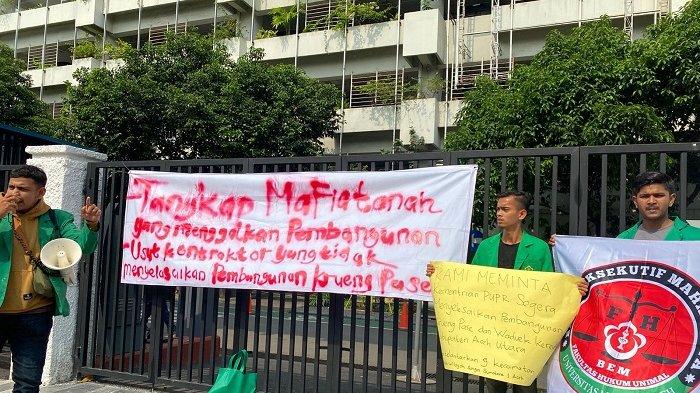 - Tangkap Mafia tanah
yang menggalkan Pembangunan
- Usut kontraktor yang tidak
menyelesaikan Pembangunan krueng Pase
KAMI MEMINTA
Kementrian PUPR Segera
menyelesaikan Pembangunan
krueng Pase dan Waduk
Kabupaten Aceh Utara
9 kecamatan
EKSEKUTIF MAHA
FH
BEM
FAKULTAS HUKUM UNIMAL